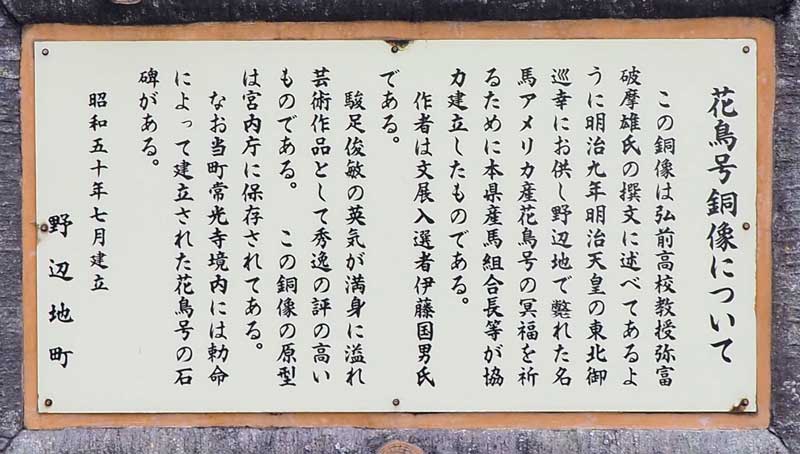 花鳥号銅像について
この銅像は弘前高校教授弥富
破摩雄氏の撰文に述べてあるよ
うに明治九年明治天皇の東北御
巡幸にお供し野辺地で斃れた名
馬アメリカ産花鳥号の冥福を祈
るために本県産馬組合長等が協
力建立したものである。
作者は文展入選者伊藤国男氏
である。
駿足俊敏の英気が満身に溢れ
芸術作品として秀逸の評の高い
ものである。 この銅像の原型
は宮内庁に保存されてある。
なお当町常光寺境内には勅命
によって建立された花鳥号の石
碑がある。
昭和五十年七月建立
野辺地町